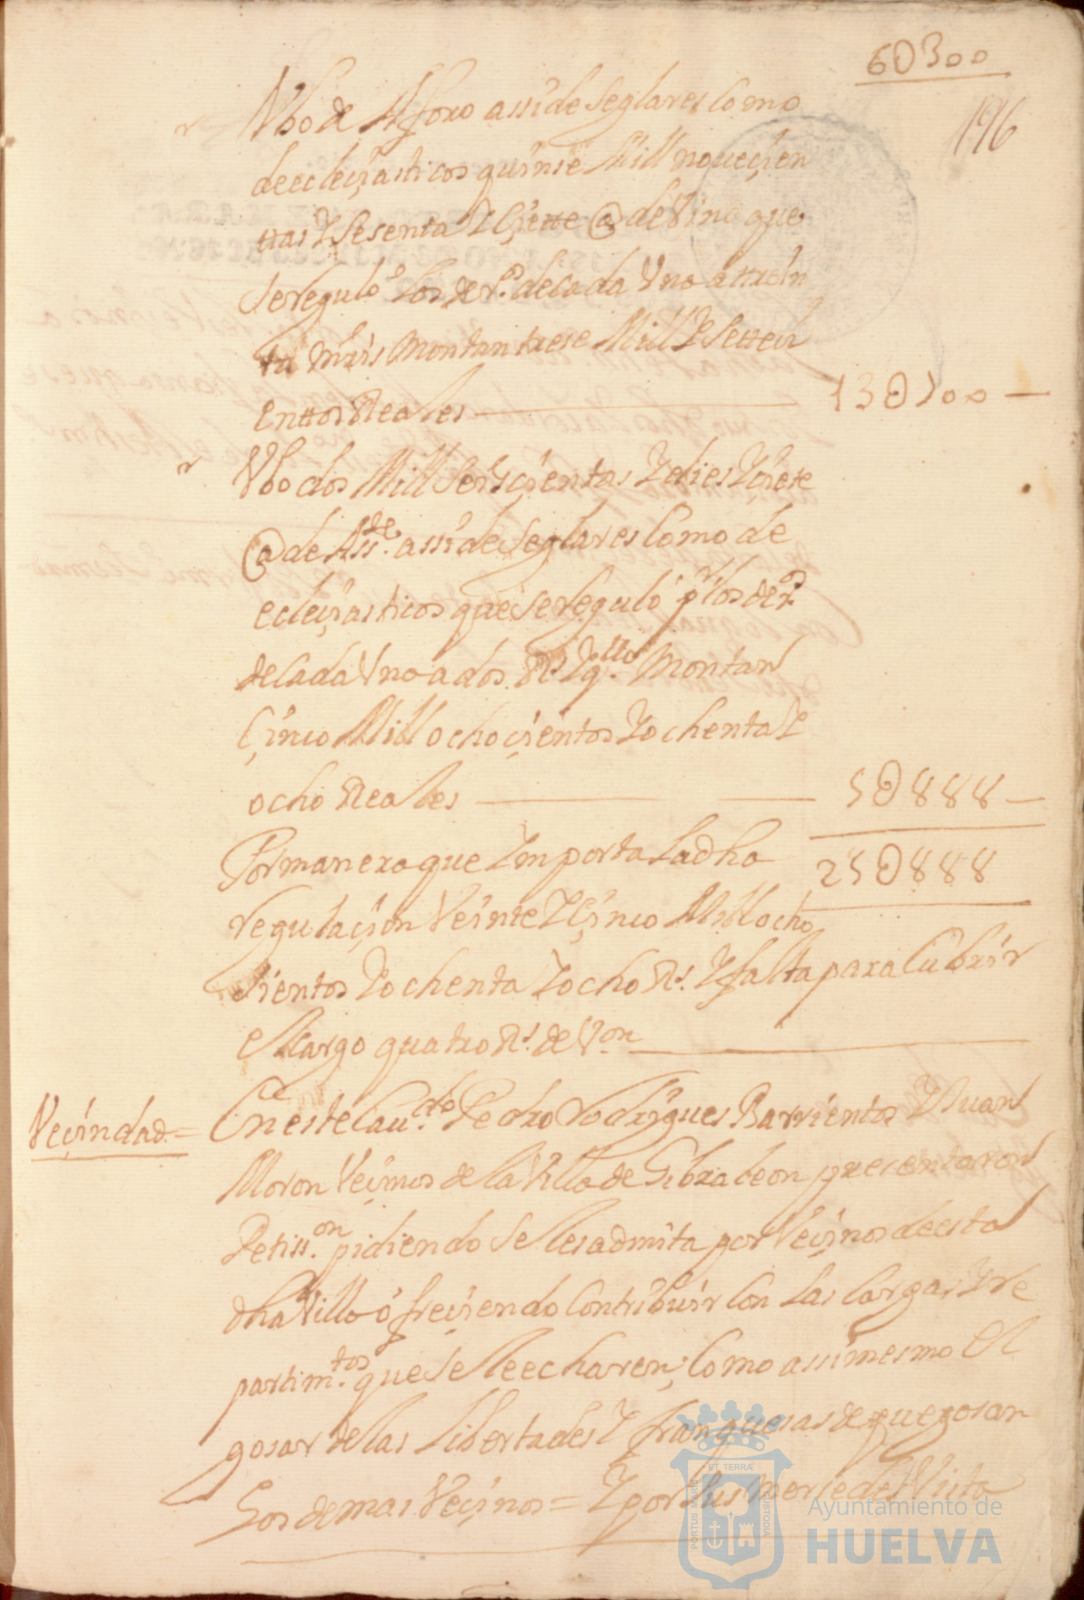 6U300
196
Vbo de Aforo assi de seglares como
de ecleçiasticos quinse mill noueçien
ttas y sesenta y çiette @ de Vino que
se reguló los der.os de cada Vno a ttrein
ta mrs montan trese mill y settesi
enttos Reales 13U700
Vbo dos mill seisçientas y dies y siete
@ de Ass.de assi de seglares como de
ecleçiasticos que se reguló pr los der.os
de cada Vno a dos Rs. y q.llo montan
çinco mill ochoçientos y ochenta y
ocho Reales 5U888
Por manera que Importa la dha 25U888
regulaçion Veinte y çinco mill ocho
sientos y ochenta y ocho Rs. y falta para Cubrir
el cargo quatro Rs. de Von
Veçindad =
En este Cau.do Pedro rodrigues Barrientos y Juan
Moron Veçinos de la Villa de Gibraleon presentaron
Petiss.on pidiendo se les admita por Veçinos de esta
dha Villa ofreçiendo Contribuir con las cargas y re
partim.tos que se le echaren; como assimesmo el
gosar de las libertades y franquesas de que gosan
Los demas Veçinos = y por sus mercedes Vista
PORTUS MARIS
ET TERRÆ
CUSTODIA
Ayuntamiento de
HUELVA